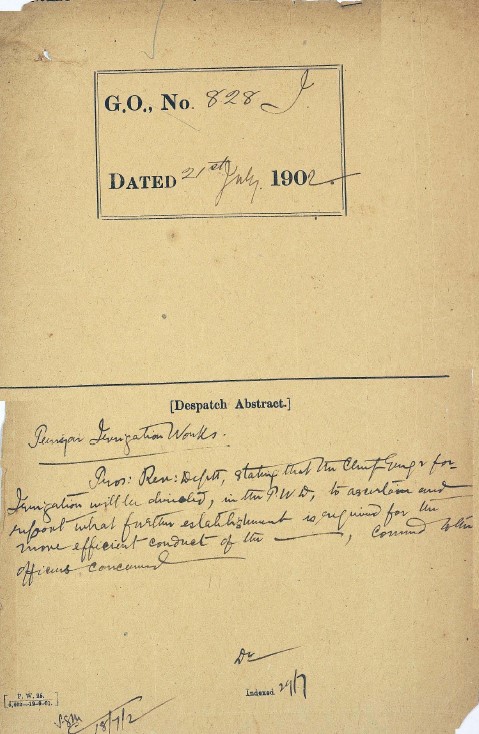 G.O., No. 828 I.
DATED 21st July. 1902.
[Despatch Abstract.]
Irrigation Works.
Pros: Rev: Deptt, stating that the Chief Engr for
Irrigation will be directed, in the P W D, to ascertain and
report what further establishment is required for the
more efficient conduct of the ———,
officers concerned
Indexed 29/7
P. W. 26.
18/7/2